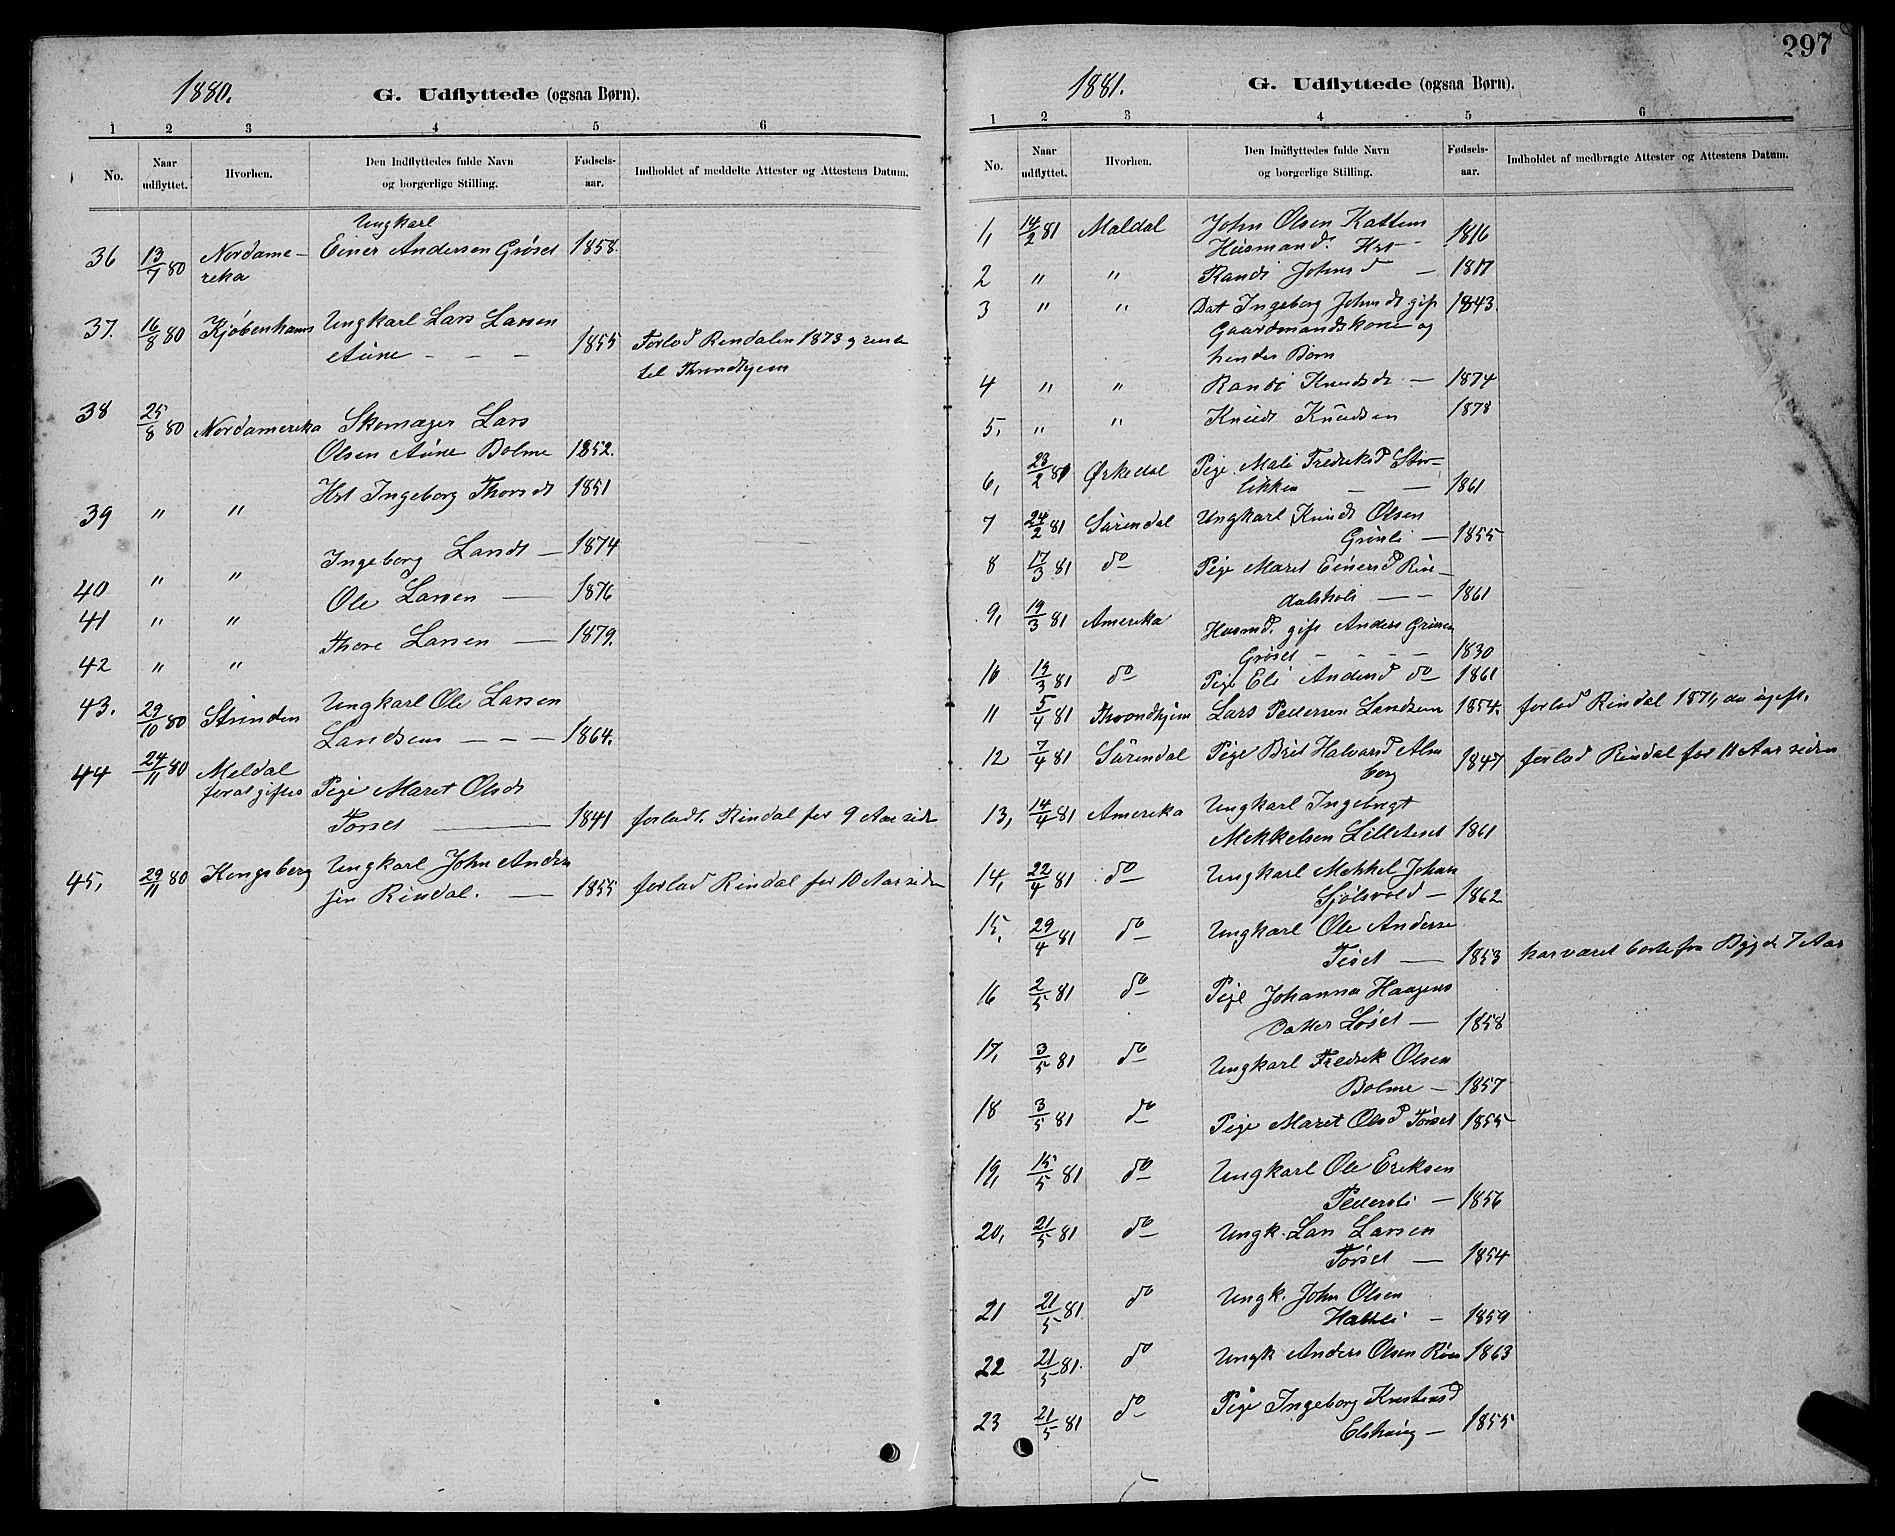 1880.
G. Udflyttede (ogsaa Børn).
1 2 3 4 5 6
No. Naar udflyttet. Hvorhen. Den Indflyttedes fulde Navn og borgerlige Stilling. Fødsels-aar. Indholdet af meddelte Attester og Attestens Datum.
Ungkarl
36 13/7 80 Nordame- Einer Andersen Grøset 1858.
reka
37. 16/8 80 Kjøbenhavn Ungkarl Lars Larsen
Aune - - - 1855 Forlod Rindalen 1873 og reiste
til Throndhjem
38 25/8 80 Nordamerika Skomager Lars
Olsen Aune Bolme 1852.
39 " " Hst Ingeborg Thorsdt 1851
40 " " Ingeborg Larsdt - 1874
41 " " Ole Larsen - 1876
42 " " Thore Larsen - 1879.
43. 29/10 80 Strinden Ungkarl Ole Larsen
Landsem - - - 1864.
44 24/11 80 Meldal
for at giftes Pige Maret Olsdt
Torset - 1841 forladt. Rindal for 9 Aar siden
45, 29/11 80 Kongsberg Ungkarl John Ander
sen Rindal. - 1855 forlod Rindal for 10 Aar siden
297
1881.
G. Udflyttede (ogsaa Børn).
1 2 3 4 5 6
No. Naar udflyttet. Hvorhen. Den Indflyttedes fulde Navn og borgerlige Stilling. Fødsels-aar. Indholdet af medbragte Attester og Attestens Datum.
1, 14/2 81 Maldal John Olsen Kattem
Husmand. Hst - 1816
2 " " Randi Johnsd - 1817
3 " " Dat Ingeborg Johnsdt gift 1843.
Gaardmandskone og
hendes Børn
4 " " Randi Knudsdt - 1874
5, " " Knudt Knudsen 1878
6, 23/2 81 Ørkedal Pige Mali Fredriksd Stor-
likken - - 1861
7 24/2 81 Surendal Ungkarl Knudt Olsen
Grønli - 1855
8 17/3 81 do Pige Maret Einersd Rin-
dalsholi - - 1861
9, 19/3 81 Amerika Husmd. gift Anders
Grøset - - - - 1830
10 19/3 81 do Pige Eli Andersd do 1861
11 5/4 81 Throndhjem Lars Pedersen Landsem 1854. forlod Rindal 1871, da ugift.
12 7/4 81 Surendal Pige Brit Halvarsd Alm
berg 1847 forlod Rindal for 11 Aar siden
13, 14/4 81 Amerika Ungkarl Ingebrigt
Mekkelsen Lilleteset 1861
14, 22/4 81 do Ungkarl Mekkel Johans
Sjølsvold - 1862
15, 29/4 81 do Ungkarl Ole Anderse
Tiset - 1853 har været borte fra Bygde 7 Aar
16 2/5 81 do Pige Johanna Haagens
Datter Løset - 1858
17, 3/5 81 do Ungkarl Fredrik Olsen
Bolme - 1857
18 3/5 81 do Pige Maret Olsd Tørset 1855
19, 15/5 81 do Ungkarl Ole Eriksen
Pedersli - 1856
20, 21/5 81 do Ungk. Lars Larsen
Tørset - 1854
21 21/5 81. do Ungk. John Olsen
Haltli - 1859
22 21/5 81. do Ungk Anders Olsen Røen 1863
23 21/5 81 do Pige Ingeborg Kristensd
Elshaug - 1855